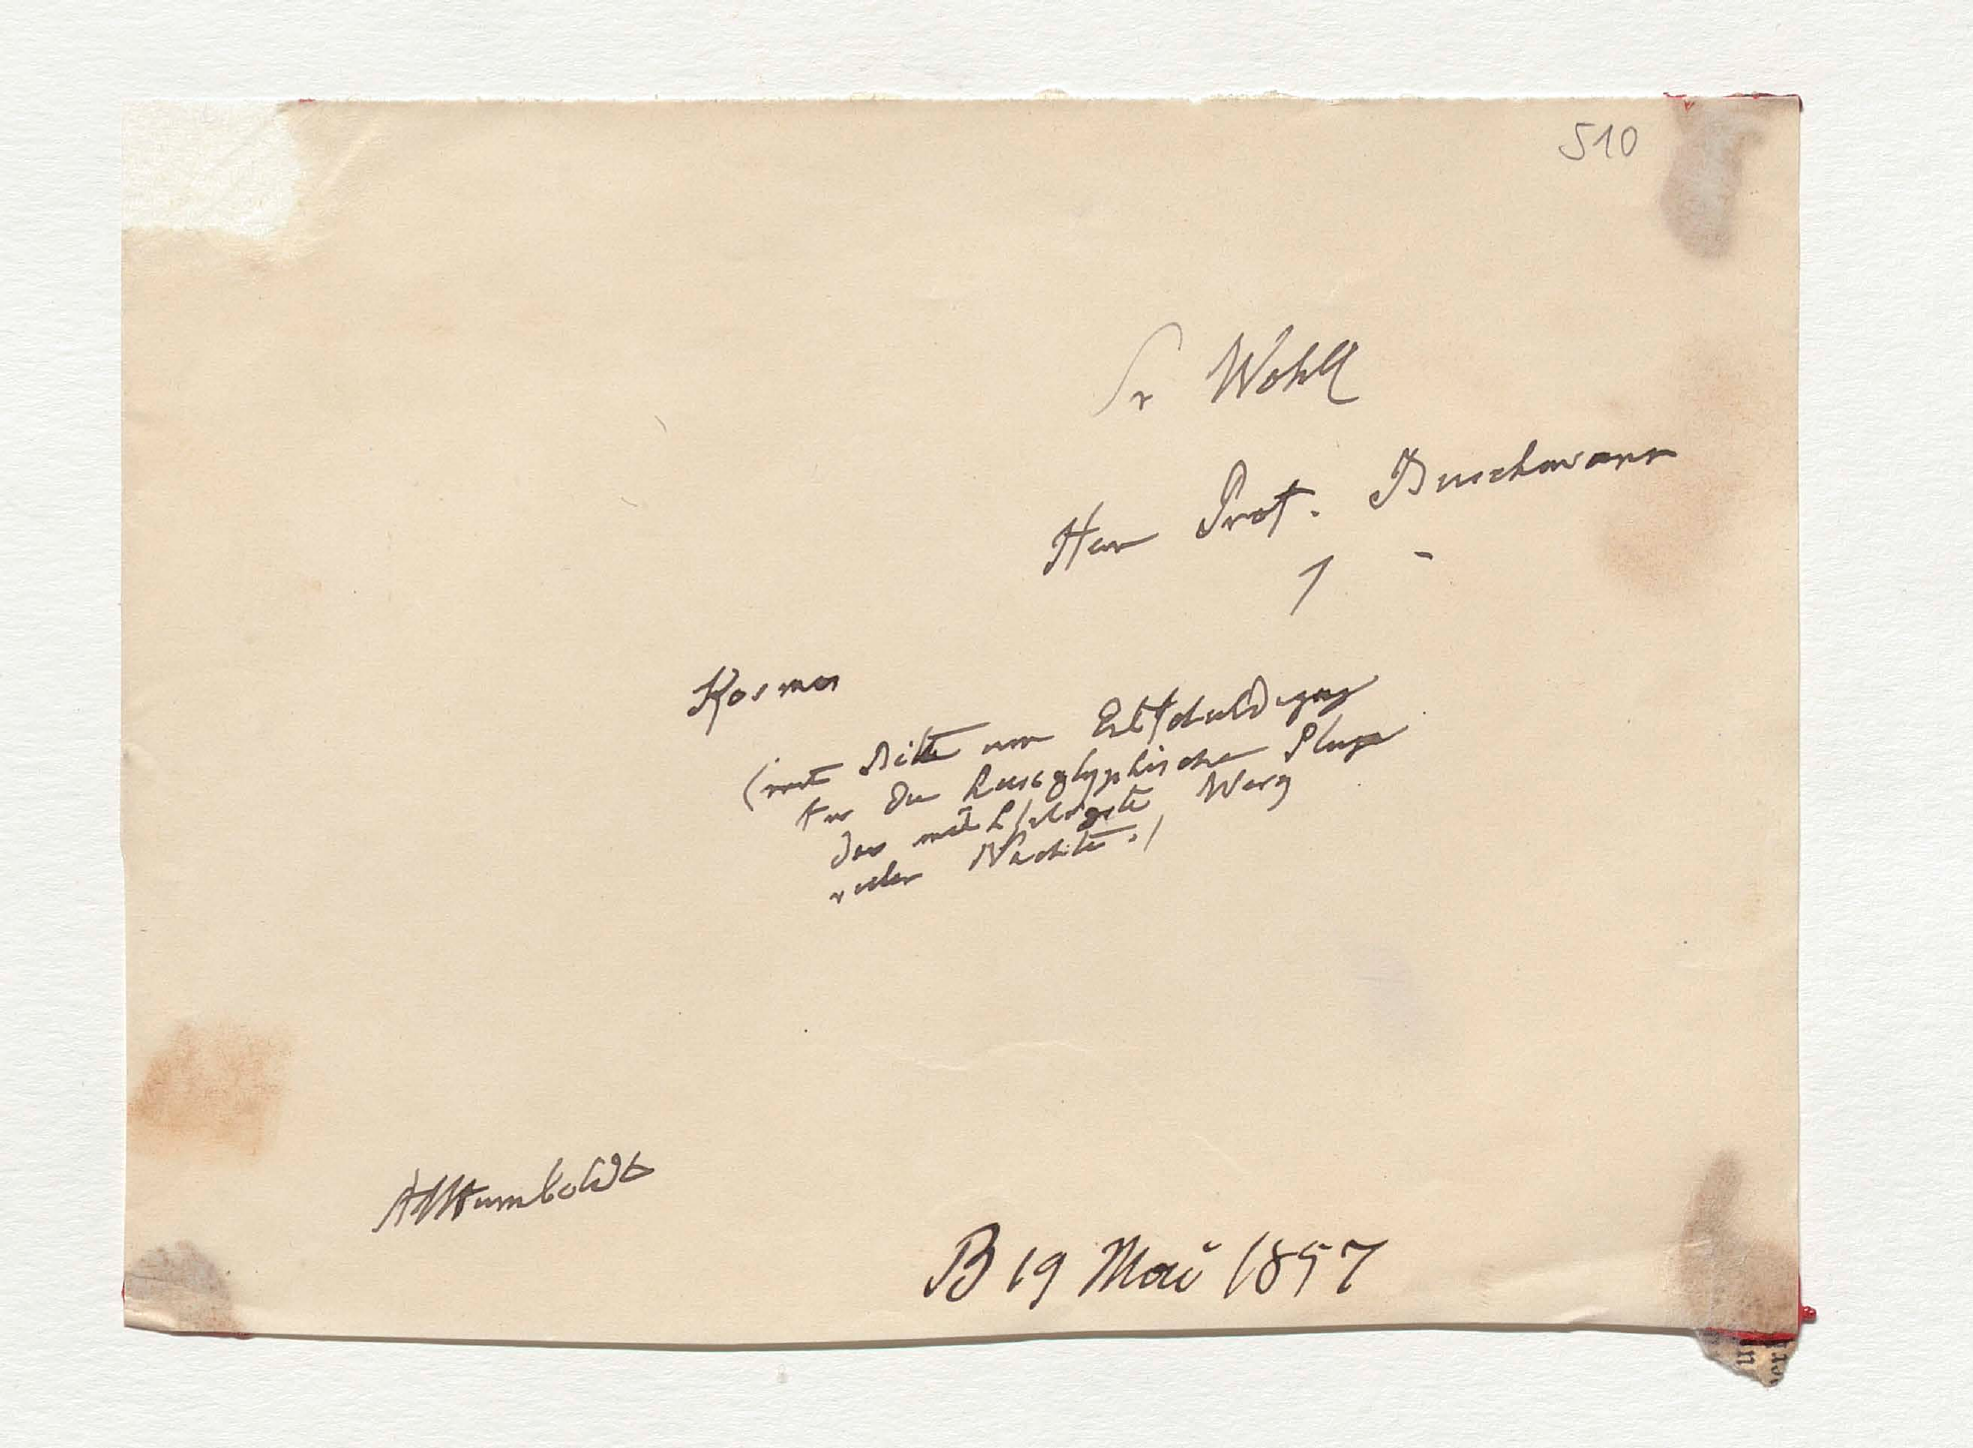 510
Sr Wohll
Herr Prof. Buschmann
Kosmos
(mit Bitte um Entschuldigung
für die hieroglyphischen
das mühseligste Werg
vieler Nächte.)
AvHumboldt
B 19 Mai 1857